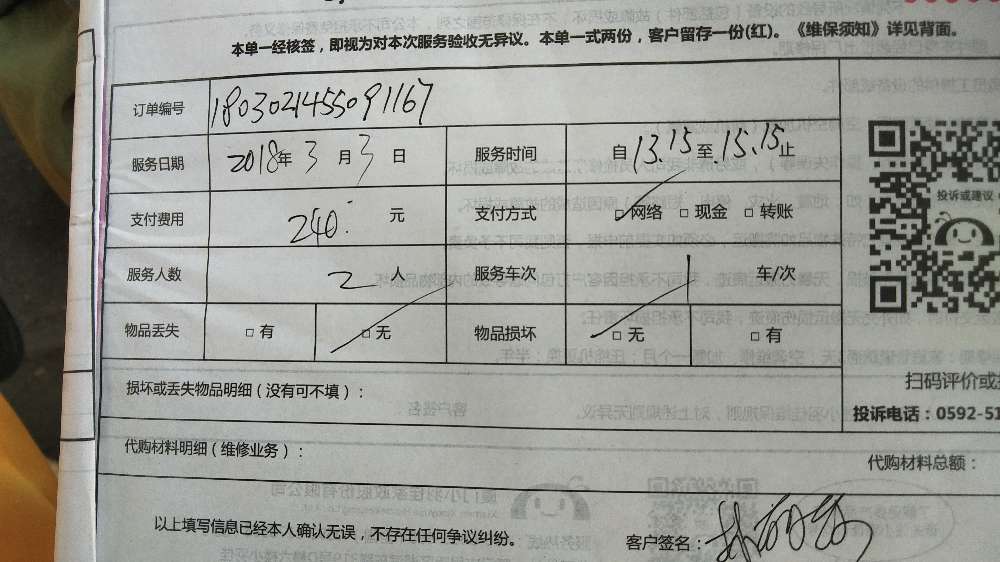 本单一经核签，即视为对本次服务验收无异议。本单一式两份，客户留存一份(红)。《维保须知》详见背面。
订单编号 1803021455091167
服务日期 2018年 3 月 3 日 服务时间 自 13.15 至 15.15 止
支付费用 240. 元 支付方式 □网络 □ 现金 □ 转账
服务人数 2 人 服务车次 1 车/次
物品丢失 □ 有 □ 无 物品损坏 □ 无 □ 有
投诉或建议
扫码评价或
损坏或丢失物品明细（没有可不填）：
投诉电话：0592-51
代购材料明细（维修业务）：
代购材料总额：
以上填写信息已经本人确认无误，不存在任何争议纠纷。
客户签名：